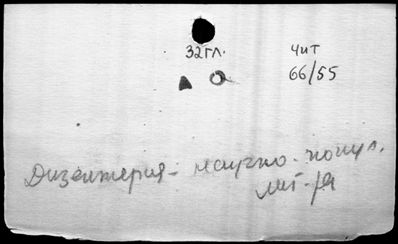 32гл.
чит
66/55
Дизентерия - научно-попул.
лит-ра